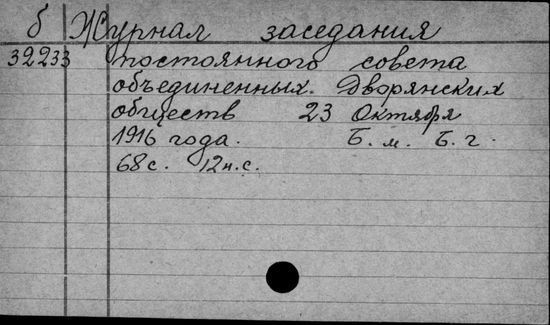 б Журнал заседания
32233 постоянного совета
объединенных. Дворянских
обществ 23 Октября
1916 года. Б. м. Б. г.
68 с. 12 н. с.